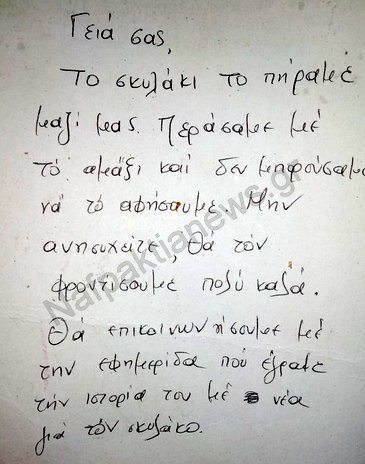 Γειά σας,
Το σκυλάκι το πήραμε
μαζί μας. Περάσαμε μέ
τό αμάξι καί δεν μπορούσαμε
νά τό αφήσουμε. Μην
ανησυχείτε, θα τόν
φροντίσουμε πολύ καλά.
Θά επικοινωνήσουμε μέ
την εφημερίδα πού έγραψε
τήν ιστορία του μέ νέα
γιά τόν σκυλάκο.
Nafpaktianews.gr